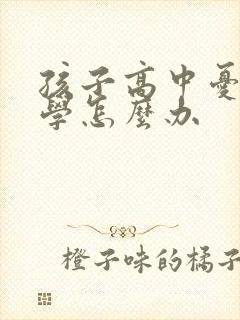 孩子高中憂
學怎麼办
橙子味的橘子